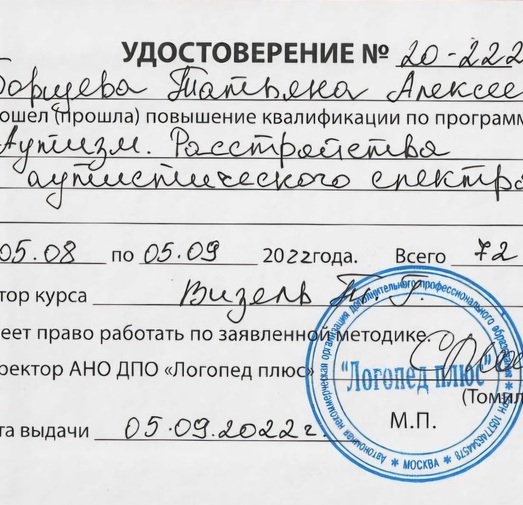 УДОСТОВЕРЕНИЕ № 20-222
Борщева Татьяна Алексее
ошел (прошла) повышение квалификации по програм
Аутизм. Расстройства
аутистического спектра
05.08 по 05.09 2022года. Всего 72
тор курса Визель Т. Г.
еет право работать по заявленной методике.
ректор АНО ДПО «Логопед плюс»
(Томил
М.П.
та выдачи 05.09.2022г.
Автономная некоммерческая организация дополнительного профессионального образования
"Логопед плюс"
* МОСКВА *